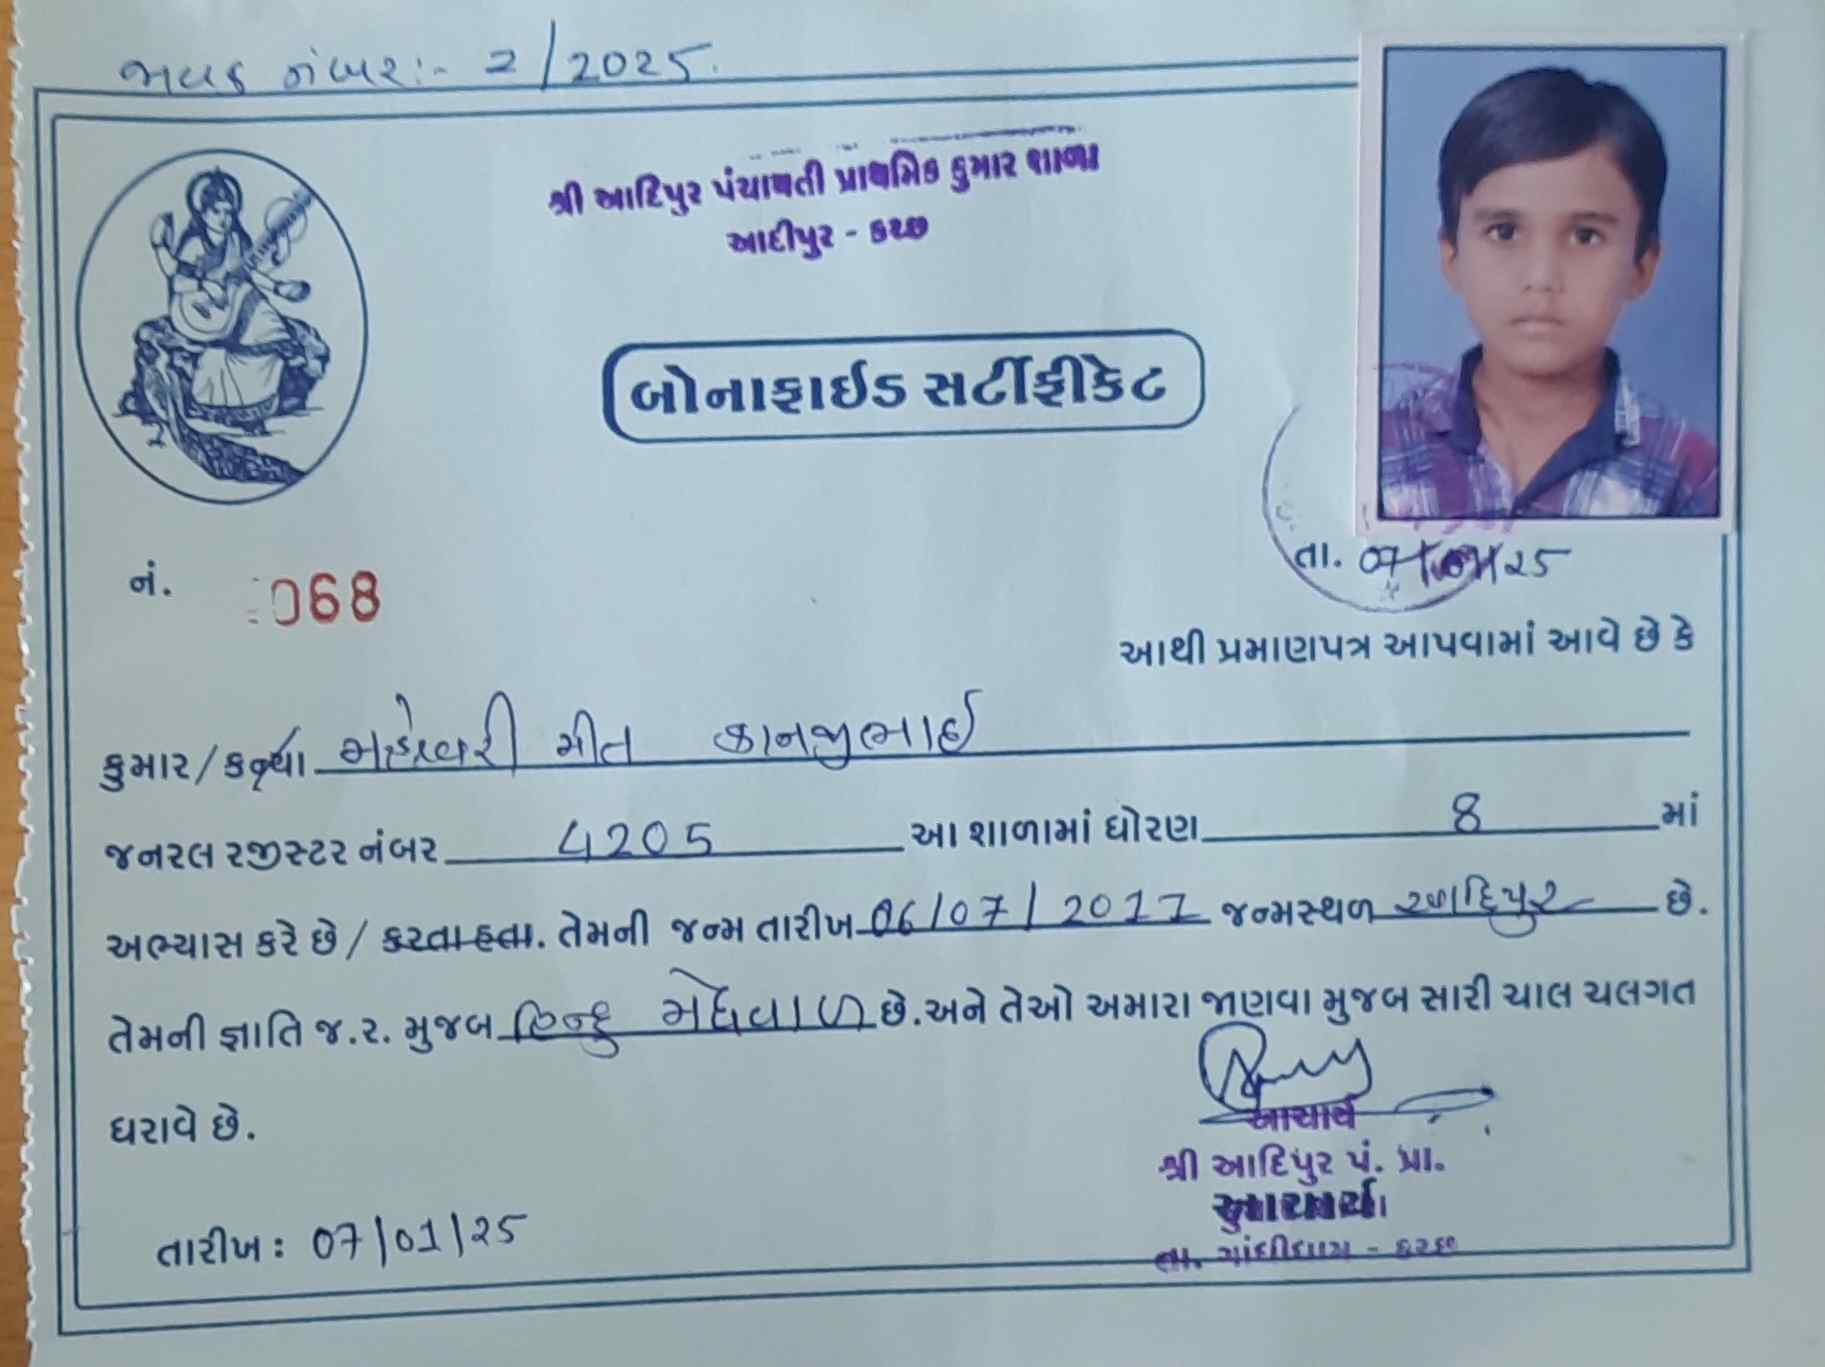 જાવક નંબર:- 2/2025.
શ્રી આદિપુર પંચાયતી પ્રાથમિક કુમાર શાળા
આદીપુર - કચ્છ
બોનાફાઈડ સર્ટીફીકેટ
તા. 07/01/25
નં. 068
આથી પ્રમાણપત્ર આપવામાં આવે છે કે
કુમાર/કન્યા મહેશ્વરી મીત કાનજીભાઈ
જનરલ રજીસ્ટર નંબર 4205 આ શાળામાં ધોરણ 8 માં
અભ્યાસ કરે છે / કરતા હતા. તેમની જન્મ તારીખ 06/07/2011 જન્મસ્થળ આદિપુર છે.
તેમની જ્ઞાતિ જ.ર. મુજબ હિન્દુ મેઘવાળ છે. અને તેઓ અમારા જાણવા મુજબ સારી ચાલ ચલગત
ધરાવે છે.
આચાર્ય
શ્રી આદિપુર પં. પ્રા.
આચાર્ય
તા. ગાંધીધામ - કચ્છ
તારીખ: 07/01/25